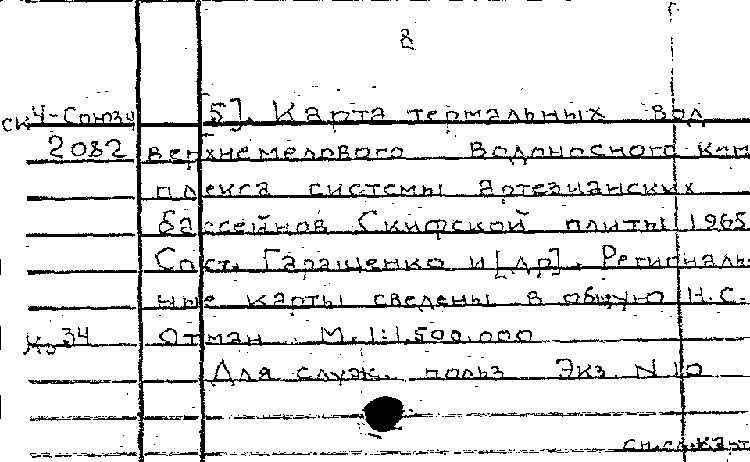 8
[5]. Карта термальных вод
2082 верхнемелового водоносного ком
плекса системы артезианских
бассейнов Скифской плиты 1965
Сост. Гаращенко и [др]. Региональ-
ные карты сведены в общую Н.С.
34 Отман М. 1:1.500.000
Для служ. польз Экз N 10